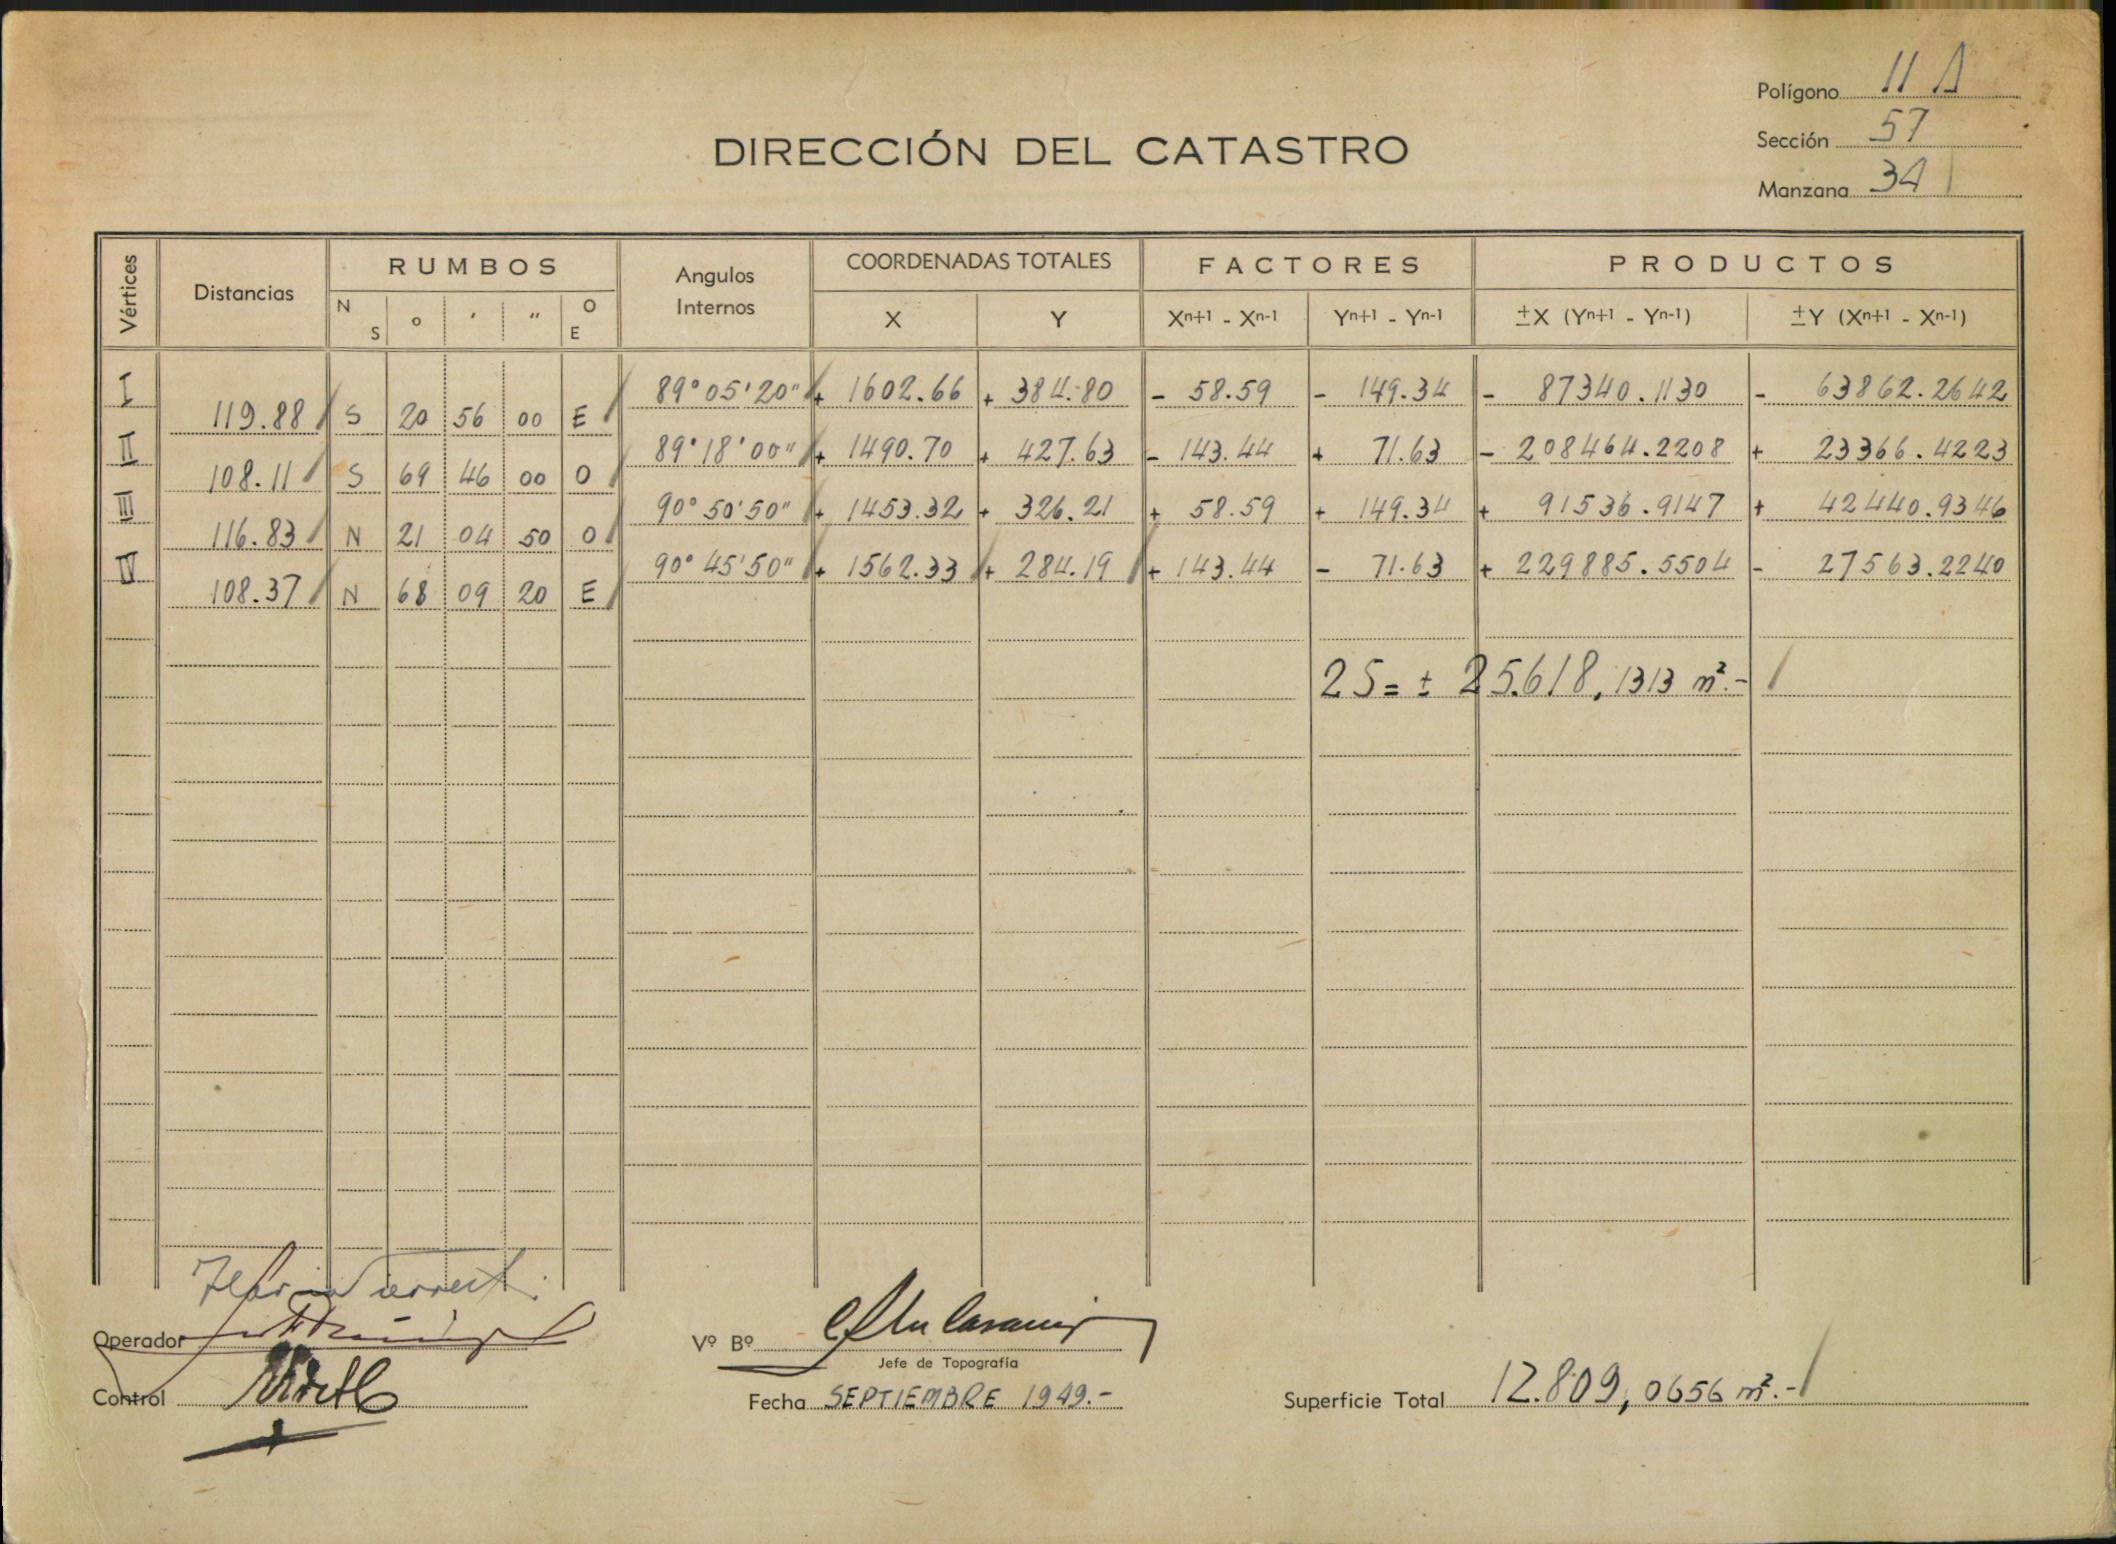 Polígono 11 A
Sección 57
Manzana 34
DIRECCIÓN DEL CATASTRO
Vértices Distancias RUMBOS Angulos Internos COORDENADAS TOTALES FACTORES PRODUCTOS
N S ° ' " O E X Y Xn+1 - Xn-1 Yn+1 - Yn-1 ±X (Yn+1 - Yn-1) ±Y (Xn+1 - Xn-1)
I 89° 05' 20" + 1602.66 + 384.80 - 58.59 - 149.34 - 87340.1130 - 63862.2642
119.88 S 20 56 00 E
II 89° 18' 00" + 1490.70 + 427.63 - 143.44 + 71.63 - 208464.2208 + 23366.4223
108.11 S 69 46 00 O
III 90° 50' 50" + 1453.32 + 326.21 + 58.59 + 149.34 + 91536.9147 + 42440.9346
116.83 N 21 04 50 O
IV 90° 45' 50" + 1562.33 + 284.19 + 143.44 - 71.63 + 229885.5504 - 27563.2240
108.37 N 68 09 20 E
2S = ± 25.618,1313 m².-
Operador
Vº Bº
Jefe de Topografía
Control
Fecha SEPTIEMBRE 1949.-
Superficie Total 12.809,0656 m².-